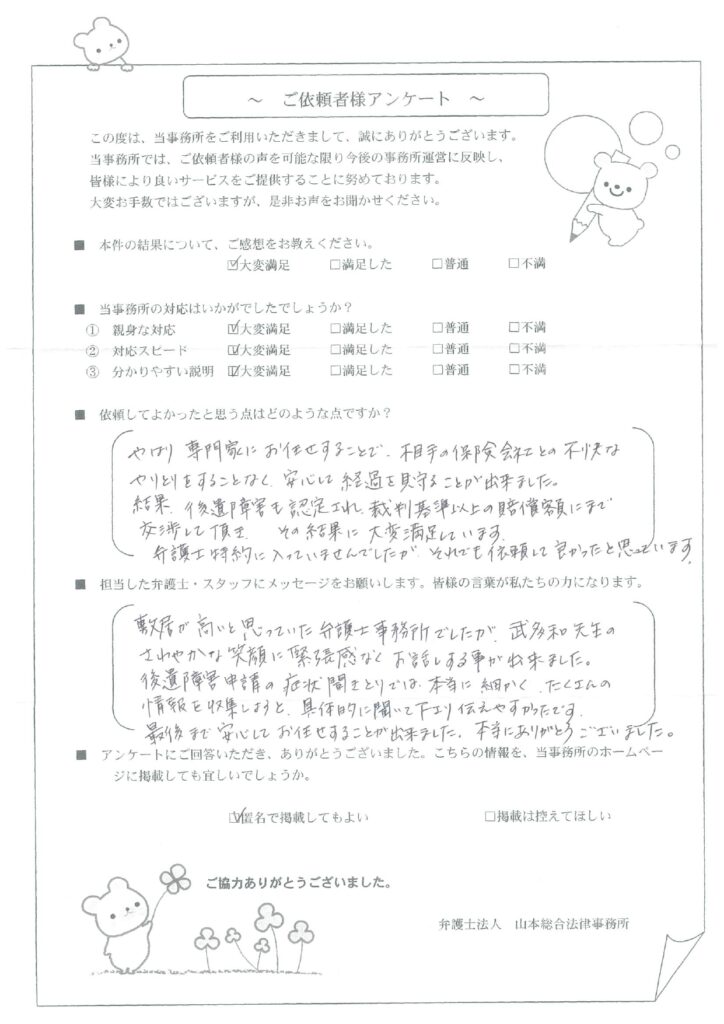 ～　ご依頼者様アンケート　～
この度は、当事務所をご利用いただきまして、誠にありがとうございます。
当事務所では、ご依頼者様の声を可能な限り今後の事務所運営に反映し、
皆様により良いサービスをご提供することに努めております。
大変お手数ではございますが、是非お声をお聞かせください。
■　本件の結果について、ご感想をお教えください。
☑大変満足　□満足した　□普通　□不満
■　当事務所の対応はいかがでしたでしょうか？
①　親身な対応　☑大変満足　□満足した　□普通　□不満
②　対応スピード　☑大変満足　□満足した　□普通　□不満
③　分かりやすい説明　☑大変満足　□満足した　□普通　□不満
■　依頼してよかったと思う点はどのような点ですか？
やはり 専門家に お任せすることで、相手の保険会社との 不快な
やりとりをすることなく、安心して 経過を見守ることが出来ました。
結果、後遺障害も認定され、裁判基準以上の賠償額にまで
交渉して頂き、その結果に 大変満足しています。
弁護士特約に入っていませんでしたが、それでも依頼して良かったと思っています。
■　担当した弁護士・スタッフにメッセージをお願いします。皆様の言葉が私たちの力になります。
敷居が 高いと思っていた弁護士事務所でしたが、武多和先生の
さわやかな笑顔に緊張感なく お話しする事が出来ました。
後遺障害申請の症状聞きとりでは、本当に細かく、たくさんの
情報を収集しようと、具体的に聞いて下さり伝えやすかったです。
最後まで安心してお任せすることが出来ました。本当にありがとうございました。
■　アンケートにご回答いただき、ありがとうございました。こちらの情報を、当事務所のホームペー
ジに掲載しても宜しいでしょうか。
☑匿名で掲載してもよい　□掲載は控えてほしい
ご協力ありがとうございました。
弁護士法人　山本総合法律事務所